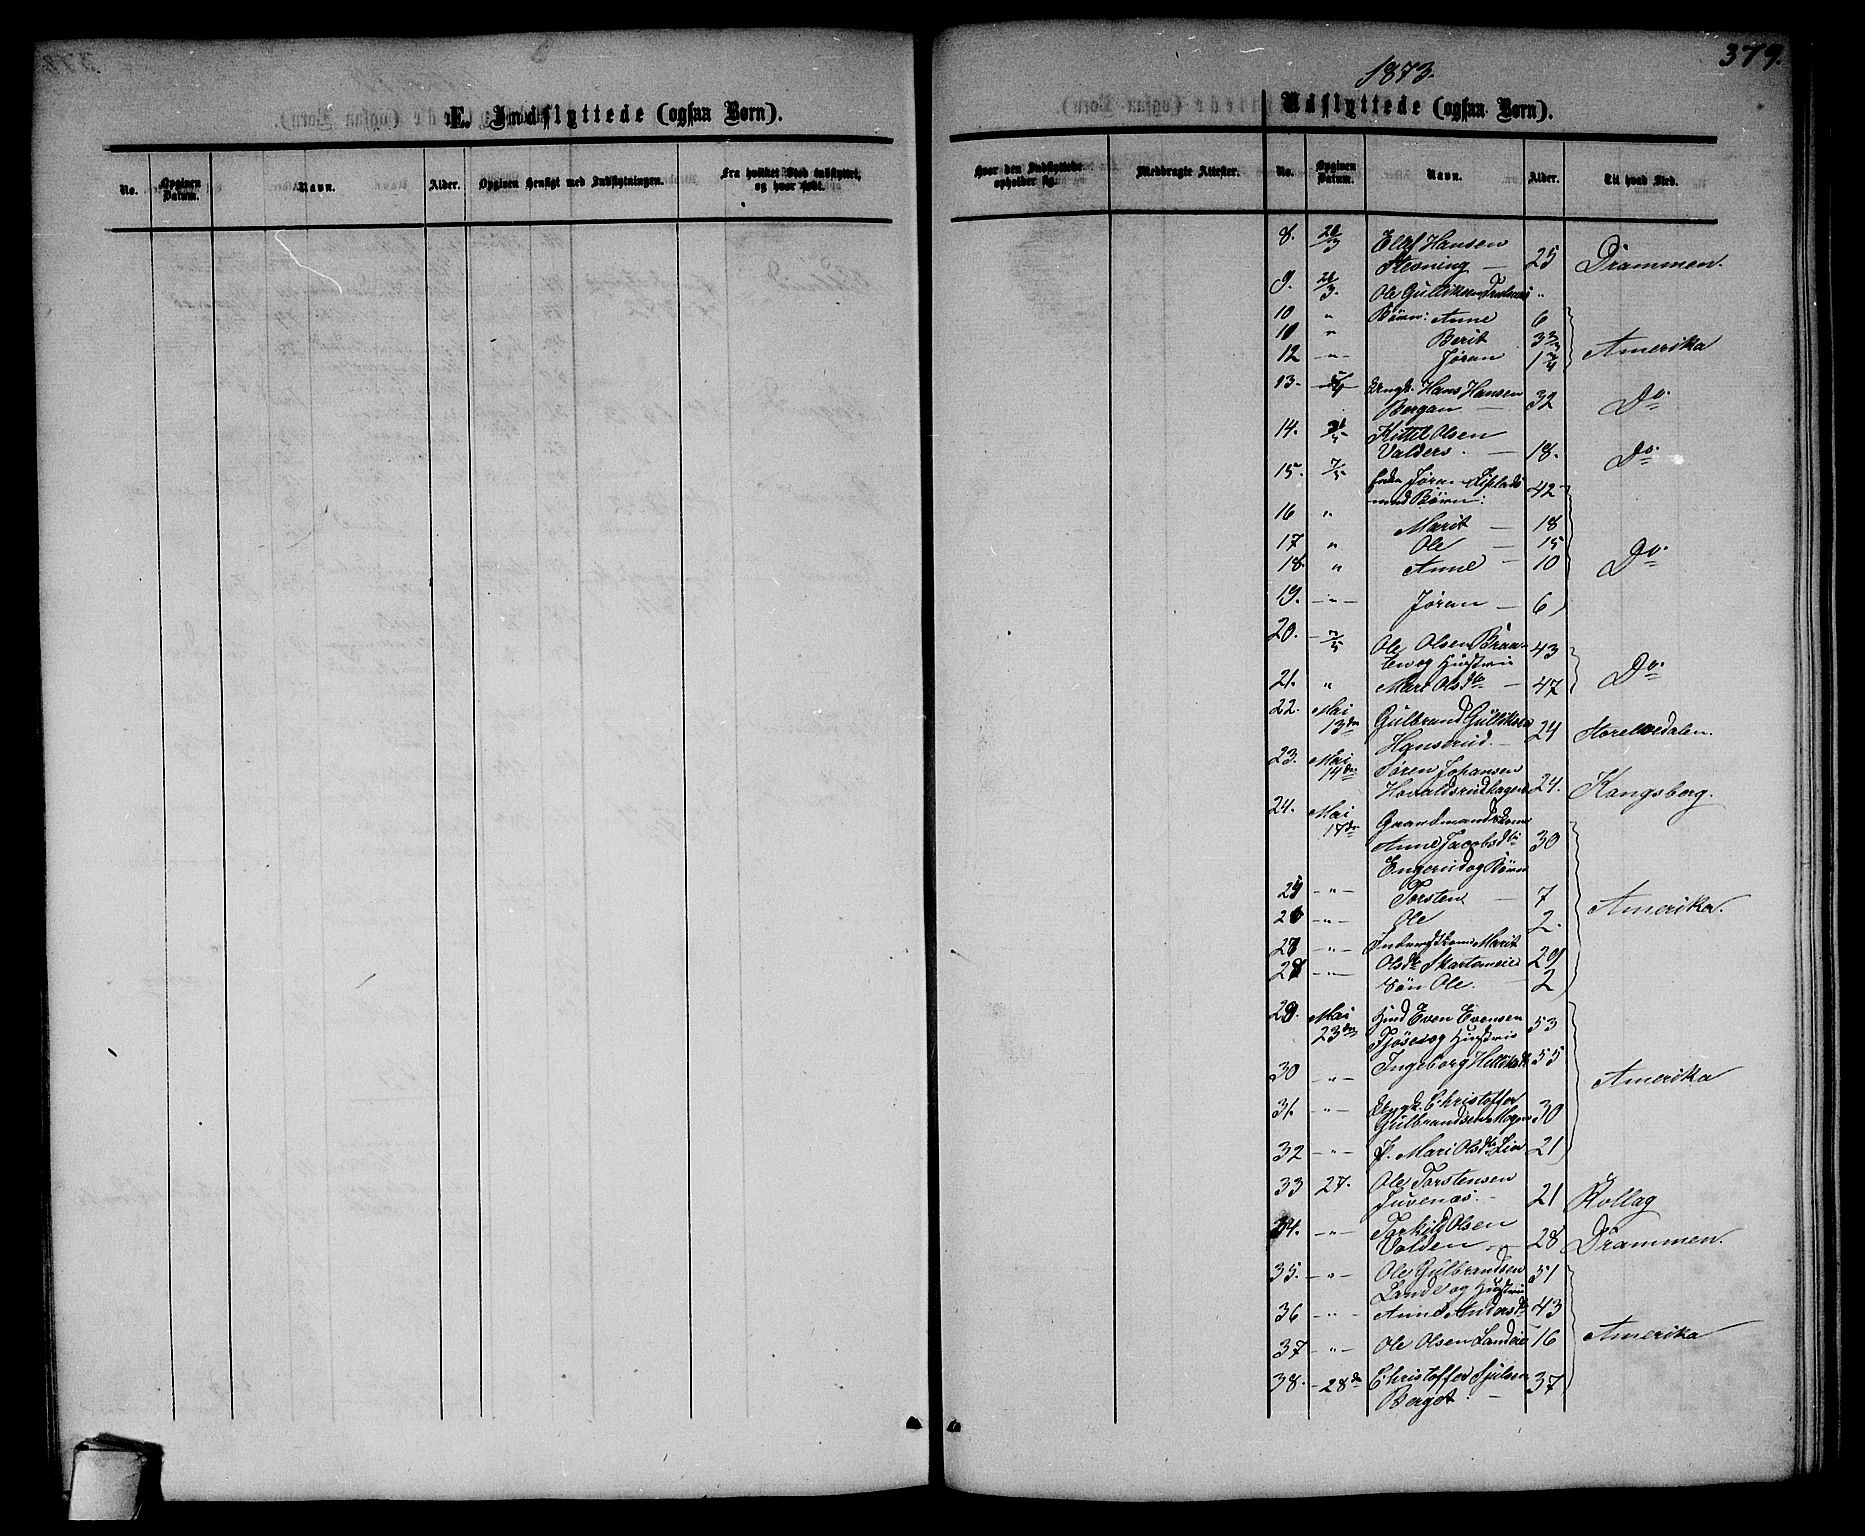 379.
1873.
E. Indflyttede (ogsaa Børn).
Udflyttede (ogsaa Børn).
No. Opgiven Datum. Navn. Alder. Opgiven Hensigt med Indflytningen. Fra hvilket Sted indflyttet, og hvor født.
Hvor den Indflyttede opholder sig. Medbragte Attester. No. Opgiven Datum. Navn. Alder. Til hvad Sted.
8. 28/3 Ellef Hansen
Stevning — 25 Drammen.
9. 28/3. Ole Gulliksen
10 " Børn: Anne 6
11 " Berit 3
12 —"— Jøran 1 3/4 Amerika
13. Ungk. Hans Hansen
Bergan — 32 Do.
14. Kittil Olsen
Valders. — 18. Do.
15. 7/5 Jøran
med Børn: 42
16 " Marit — 18
17 " Ole — 15
18. " Anne — 10 Do.
19. —"— Jøran — 6
20. 7/5 Ole Olsen Braa-
ten og Hustru 43
21. " Mari Olsdtr — 47 Do.
22. Mai
13de Gulbrand Gulliksen
Hanserud. — 24 Storelvedalen.
23. Mai
14de Søren Johansen
Havaldsrudhagen 24. Kongsberg.
24. Mai
17de Gaardmandskone
Anne Jacobsdtr 30
Engerud og Børn
25 —"— Torsten — 7 Amerika.
26 —"— Ole 2.
27 —"— Marit
Olsdtr 29
28 —"— Søn Ole. — 2
29. Mai
23de Even Evensen
og Hustru 53
30 —"— Ingeborg 55 Amerika
31. —"— Ungk. Christoffer
Gulbrandsen 30
32 —"— P. Mari Olsdtr Lien 21
33 27. Ole Torstensen
Juvenæs. — 21 Rollag
34. —"— Torkild Olsen
Valden — 28 Drammen.
35. —"— Ole Gulbrandsen 51
og Hustru
36 —"— Anne Andersdtr 43
37 —"— Ole Olsen 16 Amerika
38. —28de Christoffer 37
Berget. —